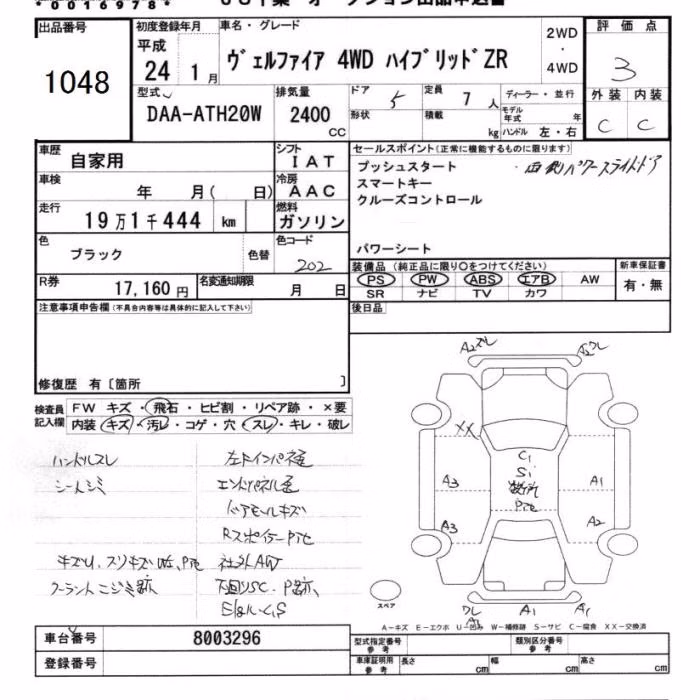 *0016978*
出品番号
1048
初度登録年月
平成
24 1月
車名・グレード
ヴェルファイア 4WD ハイブリッドZR
2WD
・
4WD
評価点
3
外装 内装
C C
型式
DAA-ATH20W
排気量
2400
CC
ドア 5
形状
定員 7人
積載 kg
ディーラー・並行
モデル年式 年
ハンドル 左・右
車歴
自家用
シフト
IAT
車検
年 月( 日)
冷房
AAC
走行
19万1千444 km
燃料
ガソリン
色
ブラック
色替
色コード
202
R券
17,160円
名変通知期限
月 日
セールスポイント(正常に機能するものに限ります)
プッシュスタート ・両側パワースライドドア
スマートキー
クルーズコントロール
パワーシート
装備品(純正品に限り〇をつけてください)
PS PW ABS エアB AW
SR ナビ TV カワ
新車保証書
有・無
後日品
注意事項申告欄(不具合内容等は具体的に記入して下さい)
修復歴 有〔箇所 〕
検査員
記入欄
FW キズ・飛石・ヒビ割・リペア跡・×要
内装 キズ・汚レ・コゲ・穴・スレ・キレ・破レ
ハンドルスレ
シートシミ
ドアモールキズ
RスポイラーPTe
社外AW
クーラントニジミ跡
A2
XX
C1
S1
PTe
A3
A1
A3
A2
スペア
A1
A1
A-キズ E-エクボ U-凹み W-補修跡 S-サビ C-腐食 XX-交換済
車台番号
8003296
登録番号
型式指定番号
参考
類別区分番号
参考
車庫証明用
参考
長さ cm
幅 cm
高さ cm